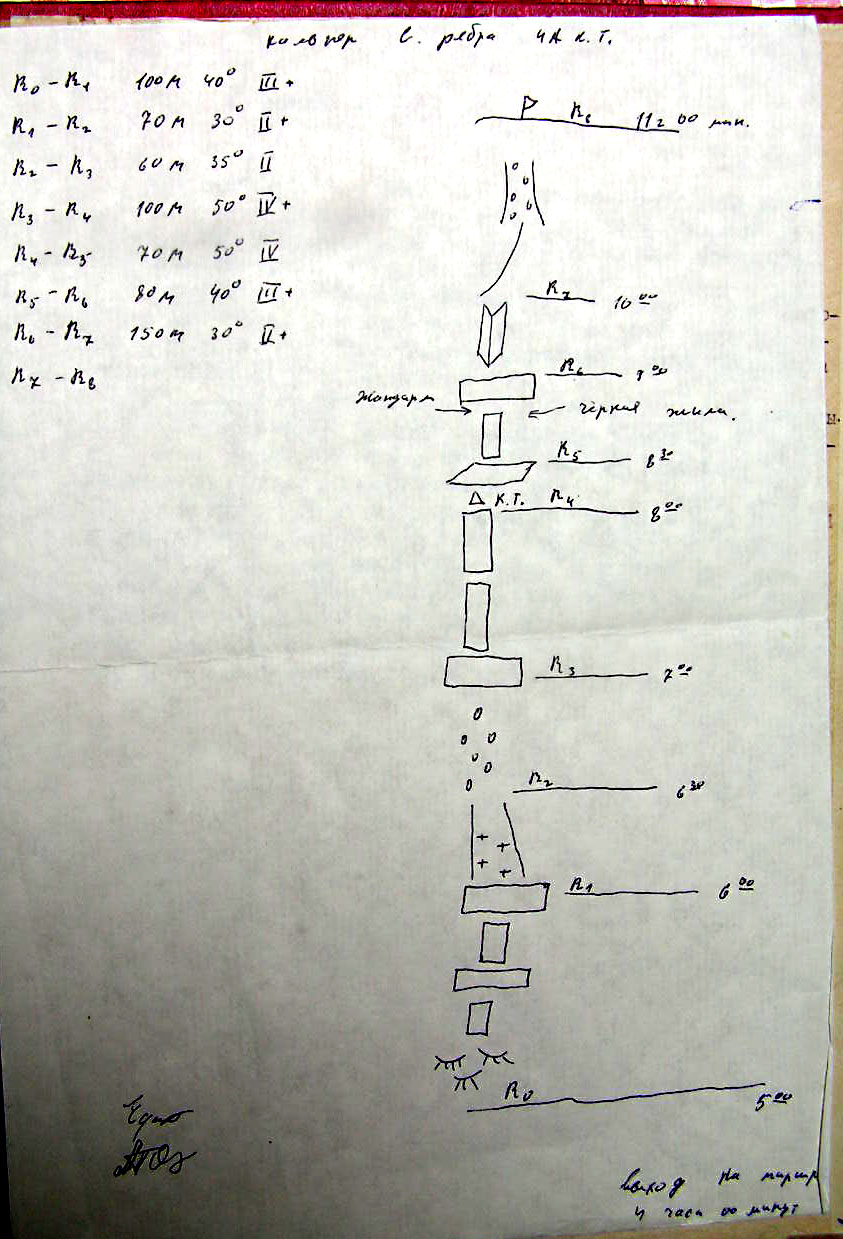 кальпер С. ребра 4А к.т.
R₀ – R₁ 100м 40° III+
R₁ – R₂ 70м 30° II+
R₂ – R₃ 60м 35° II
R₃ – R₄ 100м 50° IV+
R₄ – R₅ 70м 50° IV
R₅ – R₆ 80м 40° III+
R₆ – R₇ 150м 30° II+
R₇ – R₈
R₈ 11 00 мин.
R₇ 10 00
R₆ 9 00
жандарм
чёрная жила.
R₅ 8 30
К.Т. R₄ 8 00
R₃ 7 00
R₂ 6 30
R₁ 6 00
R₀ 5 00
выход на маршр
4 часа 00 минут